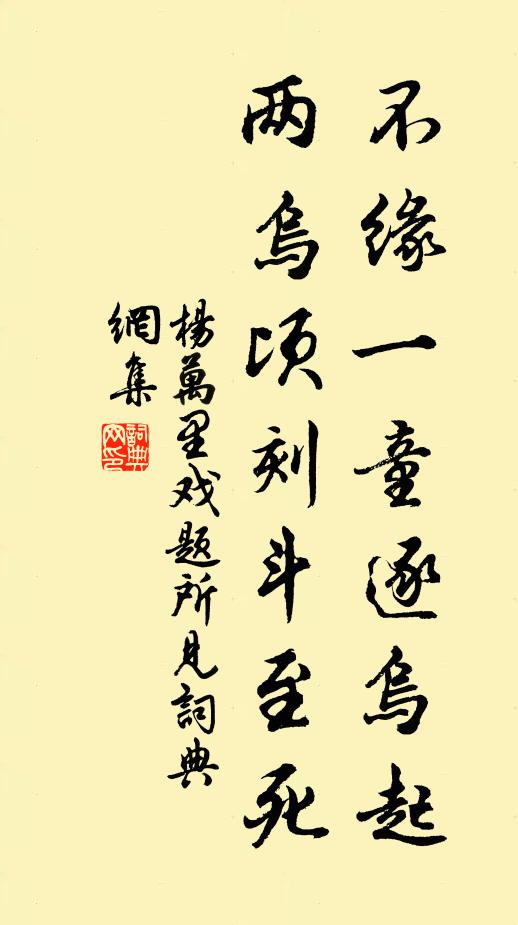 不缘一童逐乌起
两乌顷刻斗至死
杨萬里戏题所见詞典
網集
詞典网印